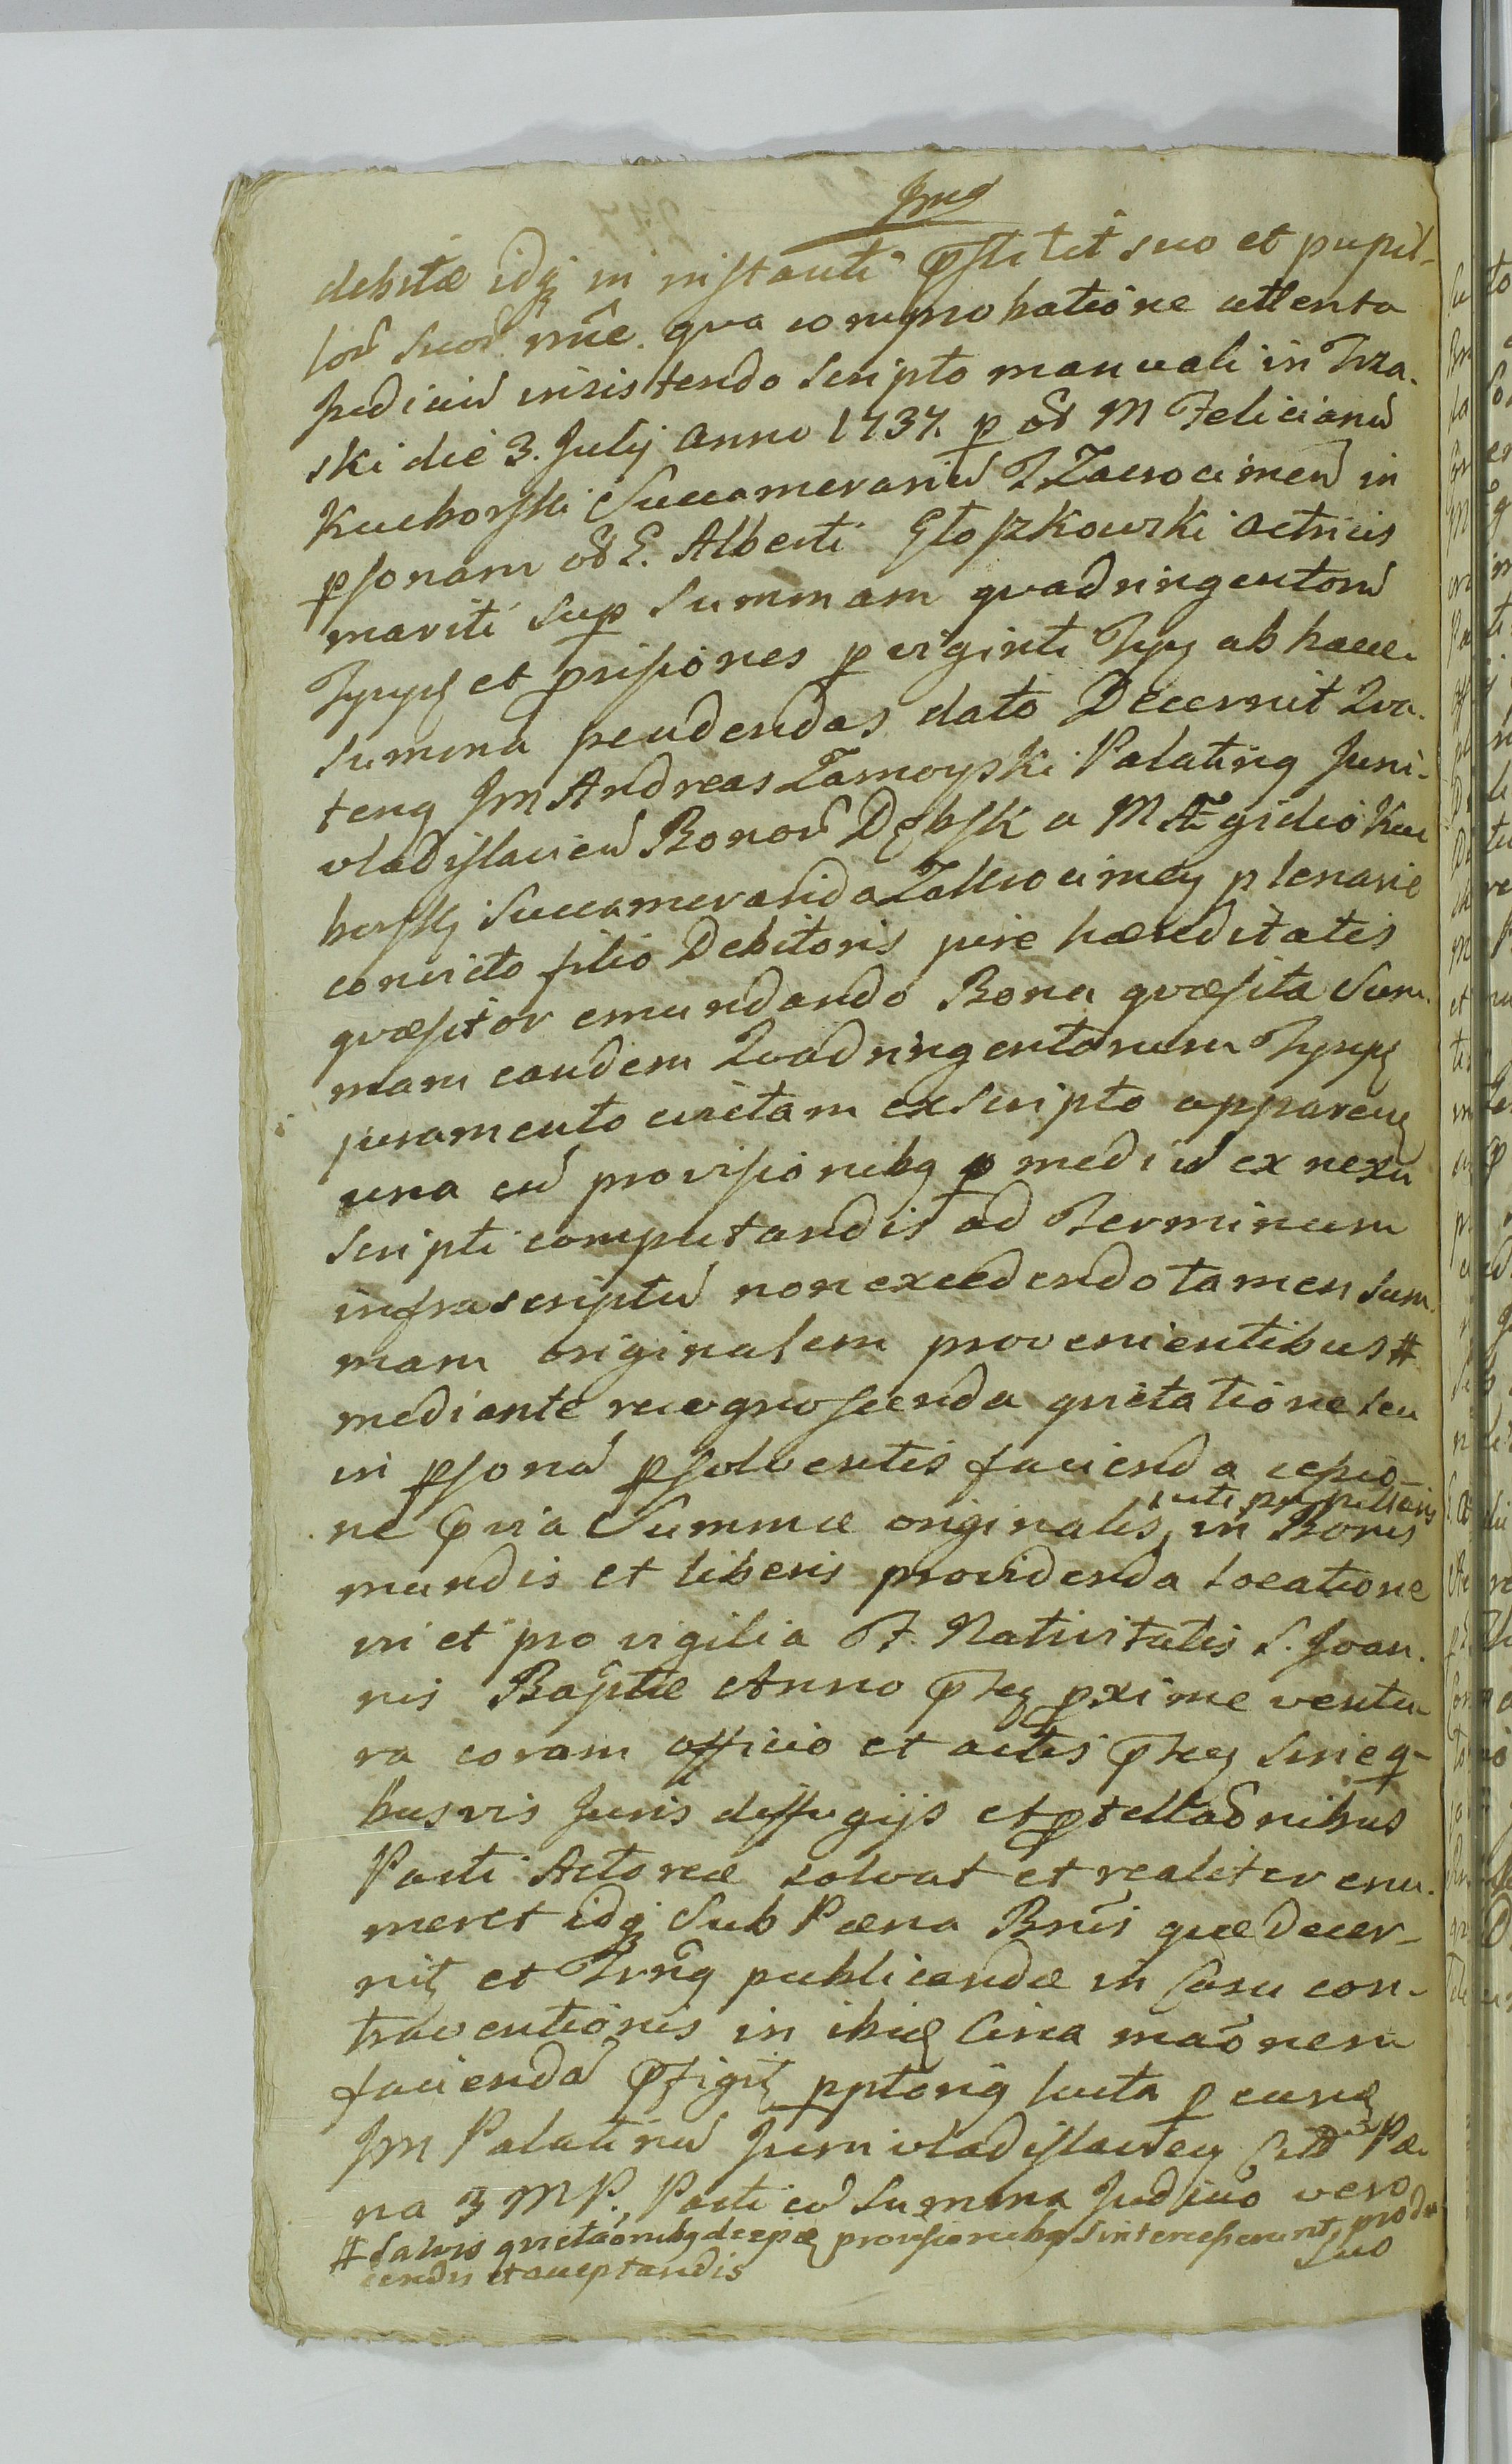 Jmg
debitæ idq in instanti pstitit suo et pupil-
lor̃ suor̃ nñe. qva comprobatione attenta
Judiciũ insistendo Scripto manuali in Trza-
ski die 3. July Anno 1737. p oð M Felicianũ
Kuchorski Succamerariũ TZacrocimeñ in
psonam oð G. Alberti Głoszkowski Actricis
mariti sup Summam quadringentorũ
Tynph et prisiones p viginti Tyf ab hacce
Summa pendendas dato Decernit Qva-
teng Jm Andreas Zamoyski Palating Juni-
vladislavieñ Bonor̃ Dębsk a M Ægidio Ku
horskj Succamerarida Zakrocimeń plenarie
convicto filio Debitoris jure hæreditatis
qvæsitor emundando Bona qvæsita Sum-
mam eandem Qvadringentorum Tynph
juramento evictam ex Scripto apparen
una cũ provisionibg p mediũ ex nexu
Scripti computandis ad Terminum
infrascriptũ non excedendo tamen Sum-
mam originalem provenientibus #
mediante recognoscenda qvietatione seu
in psona psolventis facienda cessio-
ne pvia Summæ originalis, uti pupillaris in Bonis
mundis et liberis providenda locatione
in et pro vigilia F. Nativitatis S. Joan-
nis Baptæ Anno pnt pxime ventu
ra coram officio et actis pnt Sine q-
busvis Juris diffugijs et ptellaõnibus
Parti Actoreæ solvat et realiter enu-
meret idq Sub Pæna Bnis quæ decer-
nit et Trng publicandæ in Casu con-
traventionis in ibid Circa maõnem
facienda pfigit pptorig lucta p eund
Jm Palatinũ Junivladislavieñ Sub Pæ
na 3 M P. Parti cũ Summa Judicio vero
# Salvis qvietaõnibg de rpiæ provisionibg si intercesserunt produ
cendis et acceptandis
Suo